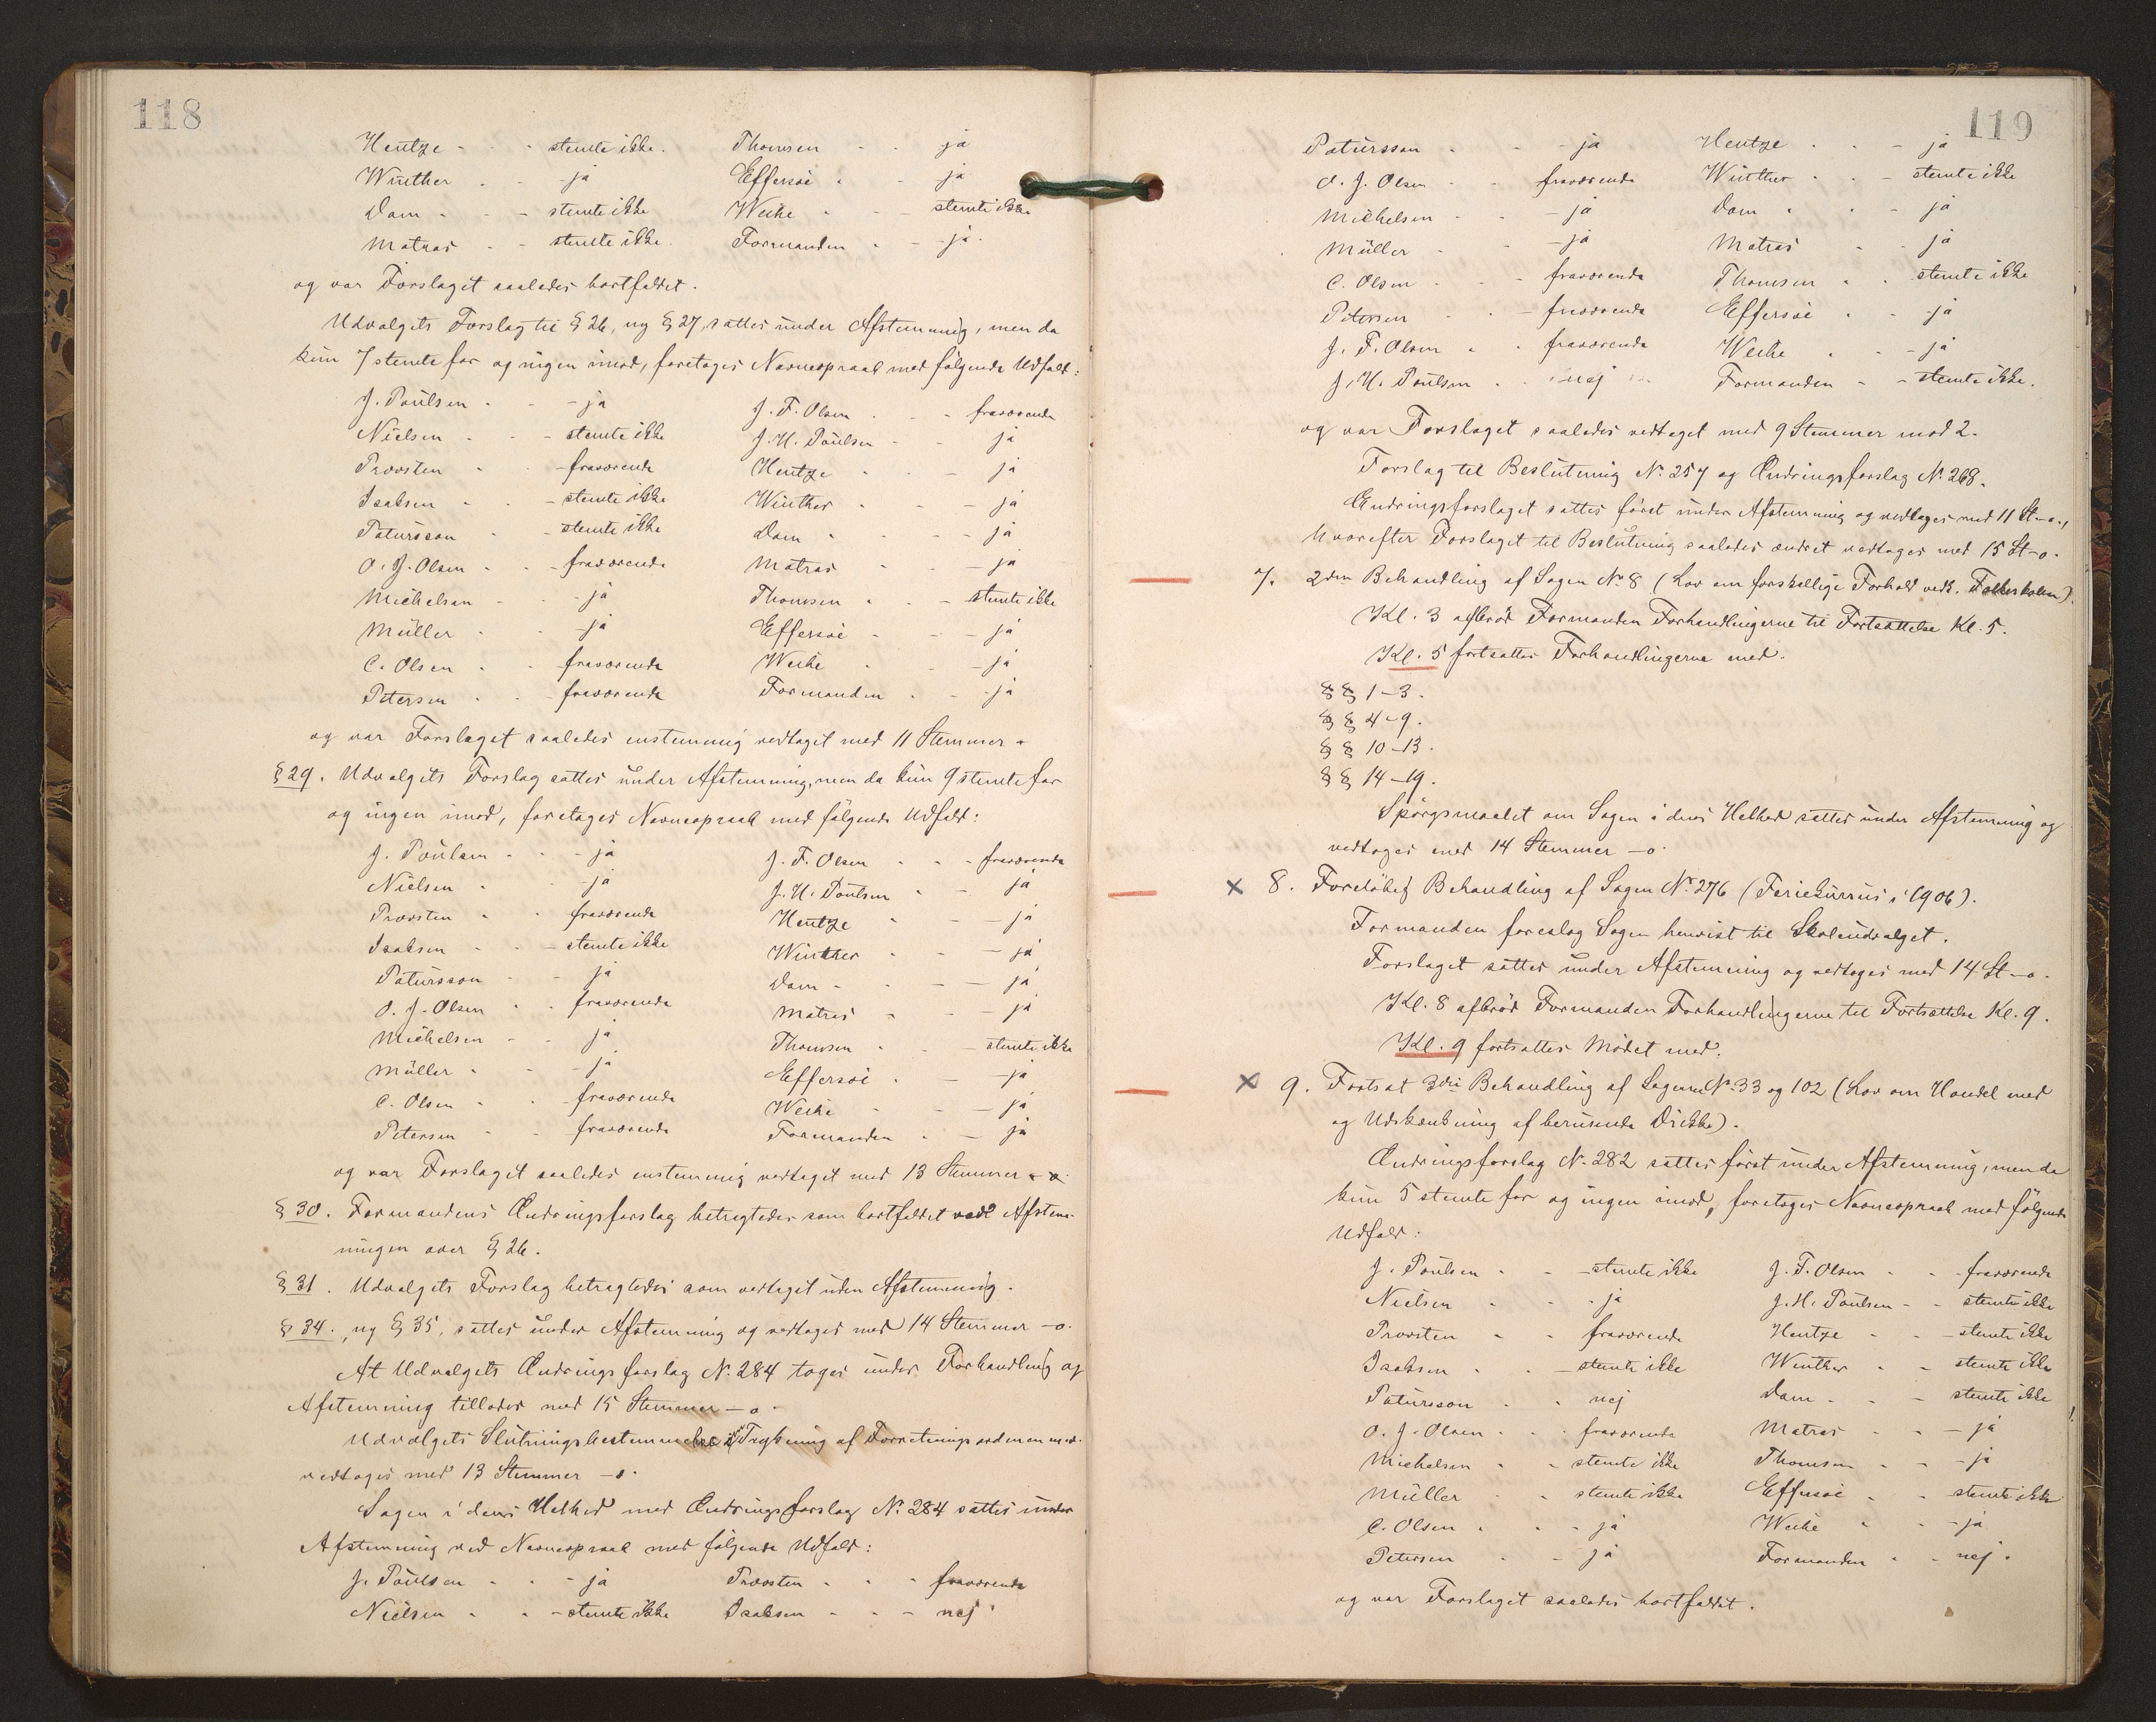 118
Hentze - - - stemte ikke. Thomsen - - ja
Winther - - ja Effersøe - - ja
Dam - - - stemte ikke Weihe - - - stemte ikke
Matras - - stemte ikke. Formanden - - ja.
og var Forslaget saaledes bortfaldet.
Udvalgets Forslag til § 26, ny § 27, sattes under Afstemning, men da
kun 7 stemte for og ingen imod, foretoges Navneopraab med følgende Udfald:
J. Poulsen - - - ja J. F. Olsen - - - fraværende
Nielsen - - - stemte ikke J. H. Poulsen - - ja
Provsten - - - fraværende Hentze - - - ja
Isaksen - - - stemte ikke Winther - - - ja
Patursson - - stemte ikke Dam - - - - ja
O. J. Olsen - - fraværende Matras - - - ja
Michelsen - - - ja Thomsen - - - stemte ikke
Müller - - - ja Effersøe - - - ja
C. Olsen - - - fraværende Weihe - - - ja
Petersen - - - fraværende Formanden - - - ja
og var Forslaget saaledes enstemmig vedtaget med 11 Stemmer.
§ 29. Udvalgets Forslag sattes under Afstemning, men da kun 9 stemte for
og ingen imod, foretoges Navneopraab med følgende Udfald:
J. Poulsen - - - ja J. F. Olsen - - - fraværende
Nielsen - - - ja J. H. Poulsen - - ja
Provsten - - fraværende Hentze - - - ja
Isaksen - - - stemte ikke Winther - - - ja
Patursson - - ja Dam - - - - ja
O. J. Olsen - - fraværende Matras - - - ja
Michelsen - - ja Thomsen - - - stemte ikke
Müller - - - ja Effersøe - - - ja
C. Olsen - - fraværende Weihe - - - ja
Petersen - - fraværende Formanden - - ja
og var Forslaget saaledes enstemmig vedtaget med 13 Stemmer - o.
§ 30. Formandens Ændringsforslag betragtedes som bortfaldet ved Afstem-
ningen over § 26.
§ 31. Udvalgets Forslag betragtedes som vedtaget uden Afstemning.
§ 34., ny § 35, sattes under Afstemning og vedtoges med 14 Stemmer - o.
At Udvalgets Ændringsforslag No. 284 toges under Forhandling og
Afstemning tillodes med 15 Stemmer - o.
Udvalgets Slutningsbestemmelse Trykning af Forretningsordenen m.v.
vedtoges med 13 Stemmer - o.
Sagen i dens Helhed med Ændringsforslag No. 284 sattes under
Afstemning ved Navneopraab med følgende Udfald:
J. Poulsen - - - ja Provsten - - - fraværende
Nielsen - - - stemte ikke Isaksen - - - nej
119
Patursson - - - ja Hentze - - - ja
O. J. Olsen - - fraværende Winther - - - stemte ikke
Michelsen - - - ja Dam - - - ja
Müller - - - ja Matras - - ja
C. Olsen - - - fraværende Thomsen - - stemte ikke
Petersen - - - fraværende Effersøe - - ja
J. F. Olsen - - fraværende Weihe - - - ja
J. H. Poulsen - - nej Formanden - - stemte ikke.
og var Forslaget saaledes vedtaget med 9 Stemmer mod 2.
Forslag til Beslutning No. 257 og Ændringsforslag No. 268.
Ændringsforslaget sattes først under Afstemning og vedtoges med 11 St - o.,
hvorefter Forslaget til Beslutning saaledes ændret vedtoges med 15 St - o.
7. 2den Behandling af Sagen No. 8 (Lov om forskellige Forhold vedk. Folkeskolen).
Kl. 3 afbrød Formanden Forhandlingerne til Fortsættelse Kl. 5.
Kl. 5 fortsattes Forhandlingerne med:
§§ 1-3.
§§ 4-9.
§§ 10-13.
§§ 14-19.
Spørgsmaalet om Sagen i dens Helhed sattes under Afstemning og
vedtoges med 14 Stemmer - o.
× 8. Foreløbig Behandling af Sagen No. 276 (Feriekursus i 1906).
Formanden foreslog Sagen henvist til Skoleudvalget.
Forslaget sattes under Afstemning og vedtoges med 14 St - o.
Kl. 8 afbrød Formanden Forhandlingerne til Fortsættelse Kl. 9.
Kl. 9 fortsattes Mødet med:
× 9. Fortsat 3die Behandling af Sagerne No. 33 og 102 (Lov om Handel med
og Udskænkning af berusende Drikke).
Ændringsforslag No. 282 sattes først under Afstemning, men da
kun 5 stemte for og ingen imod, foretoges Navneopraab med følgende
Udfald:
J. Poulsen - - - stemte ikke J. F. Olsen - - - fraværende
Nielsen - - - ja J. H. Poulsen - - stemte ikke
Provsten - - fraværende Hentze - - - stemte ikke
Isaksen - - - stemte ikke Winther - - stemte ikke
Patursson - - nej Dam - - - stemte ikke
O. J. Olsen - - fraværende Matras - - - ja
Michelsen - - stemte ikke Thomsen - - - ja
Müller - - stemte ikke Effersøe - - stemte ikke
C. Olsen - - - ja Weihe - - - ja
Petersen - - ja Formanden - - nej.
og var Forslaget saaledes bortfaldet.